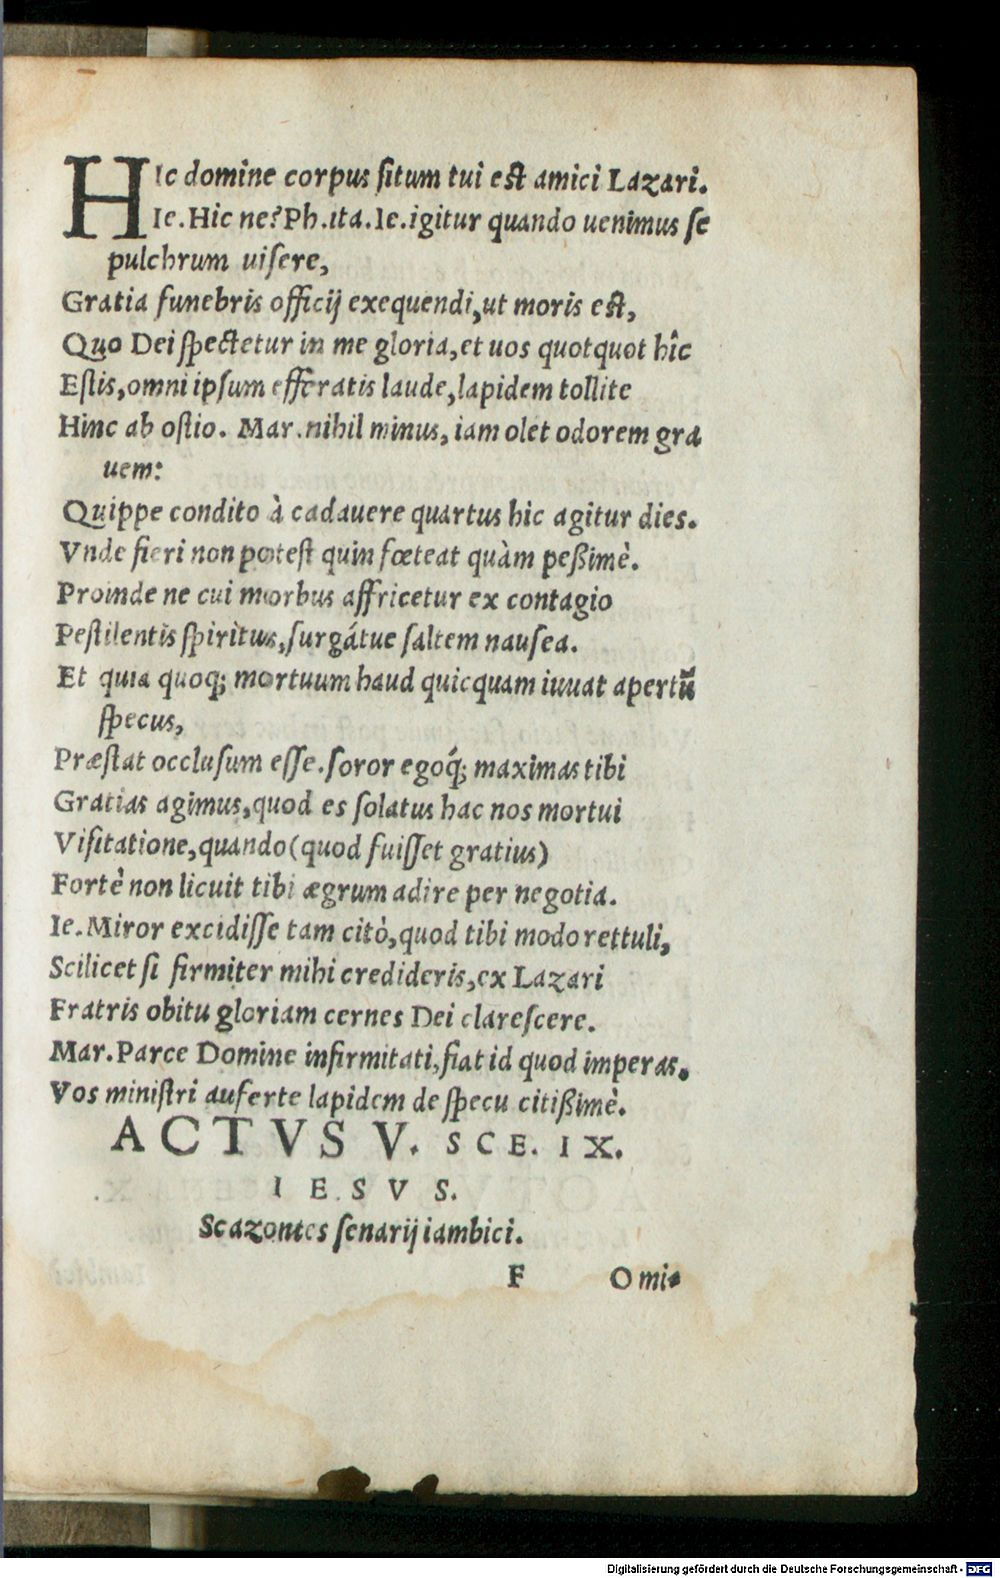 HIc domine corpus ſitum tui eſt amici Lazari.
Ie. Hic ne? Ph. ita. Ie. igitur quando uenimus ſe
pulchrum uiſere,
Gratia funebris officij exequendi, ut moris eſt,
Quo Dei ſpectetur in me gloria, et uos quotquot hîc
Eſtis, omni ipſum efferatis laude, lapidem tollite
Hinc ab oſtio. Mar. nihil minus, iam olet odorem gra
uem:
Quippe condito à cadauere quartus hic agitur dies.
Vnde fieri non poteſt quin fœteat quàm peßimè.
Proinde ne cui morbus affricetur ex contagio
Peſtilentis ſpiritus, ſurgátue ſaltem nauſea.
Et quia quoq; mortuum haud quicquam iuuat apertū
ſpecus,
Præſtat occluſum eſſe. ſoror egoq́; maximas tibi
Gratias agimus, quod es ſolatus hac nos mortui
Viſitatione, quando (quod fuiſſet gratius)
Fortè non licuit tibi ægrum adire per negotia.
Ie. Miror excidiſſe tam citò, quod tibi modo rettuli,
Scilicet ſi firmiter mihi credideris, ex Lazari
Fratris obitu gloriam cernes Dei clareſcere.
Mar. Parce Domine infirmitati, fiat id quod imperas.
Vos miniſtri auferte lapidem de ſpecu citißimè.
ACTVS V. SCE. IX.
IESVS.
Scazontes ſenarij iambici.
F Omi-
Digitalisierung gefördert durch die Deutsche Forschungsgemeinschaft - DFG